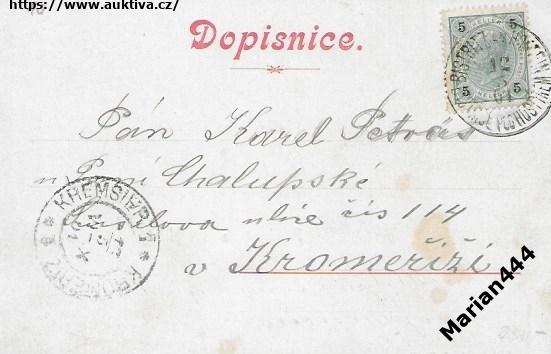 https://www.auktiva.cz/
Dopisnice.
5 HELLER 5
5 HELLER 5
12
Pán Karel Petráš
u Paní Chalupské
ulice čís 114
v Kroměříži
KREMSIER 1
Marian444